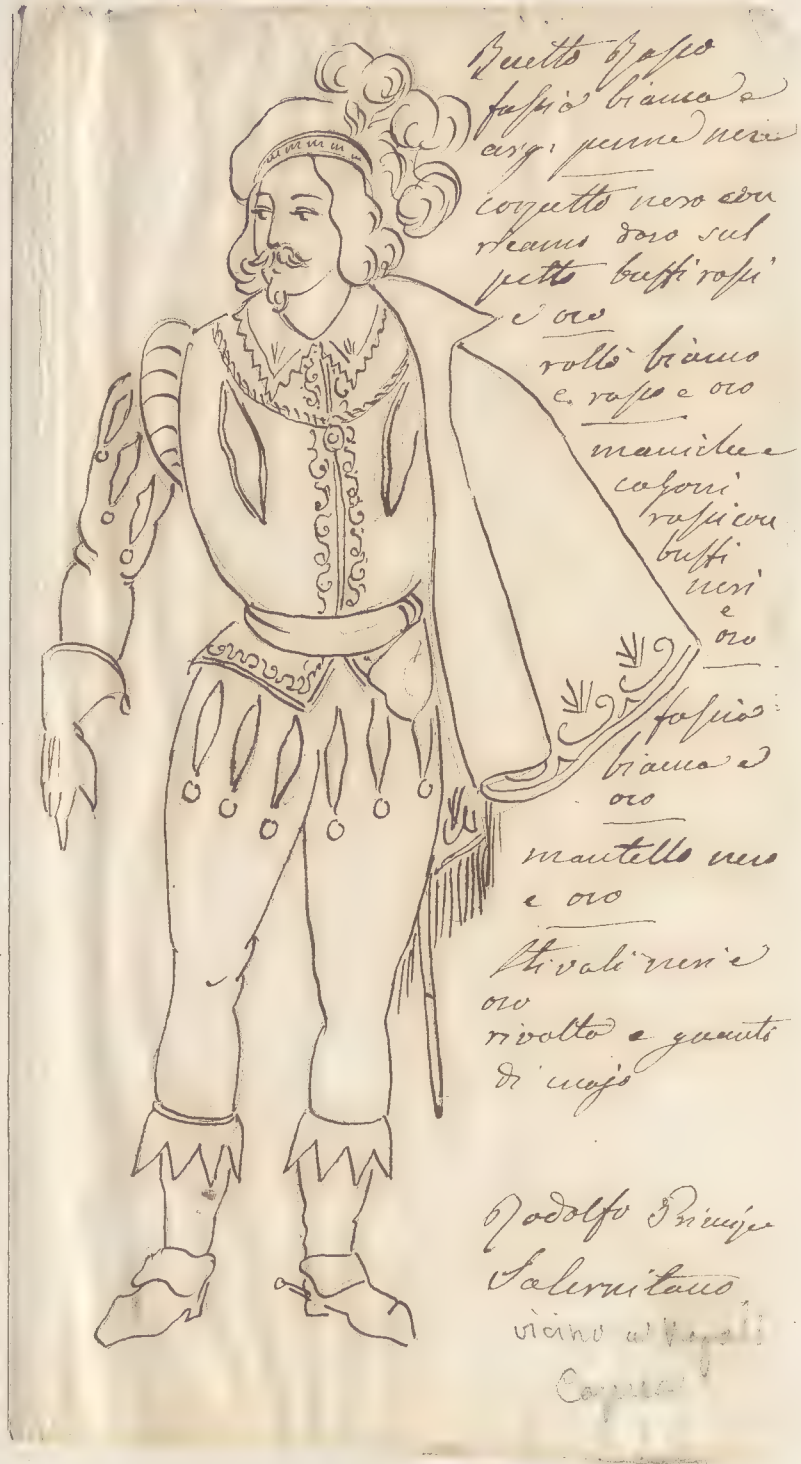 Beretto Rosso
fascia bianca e
arg: penne nere
corpetto nero con
ricamo doro sul
petto buffi rossi
e oro
collo bianco
e rosso e oro
maniche e
calzoni
rossi con
buffi
neri
e
oro
fascia
bianca e
oro
mantello nero
e oro
Stivali neri e
oro
rivolto e guanti
di cuojo
Rodolfo Principe
Salernitano
vicino a Napoli